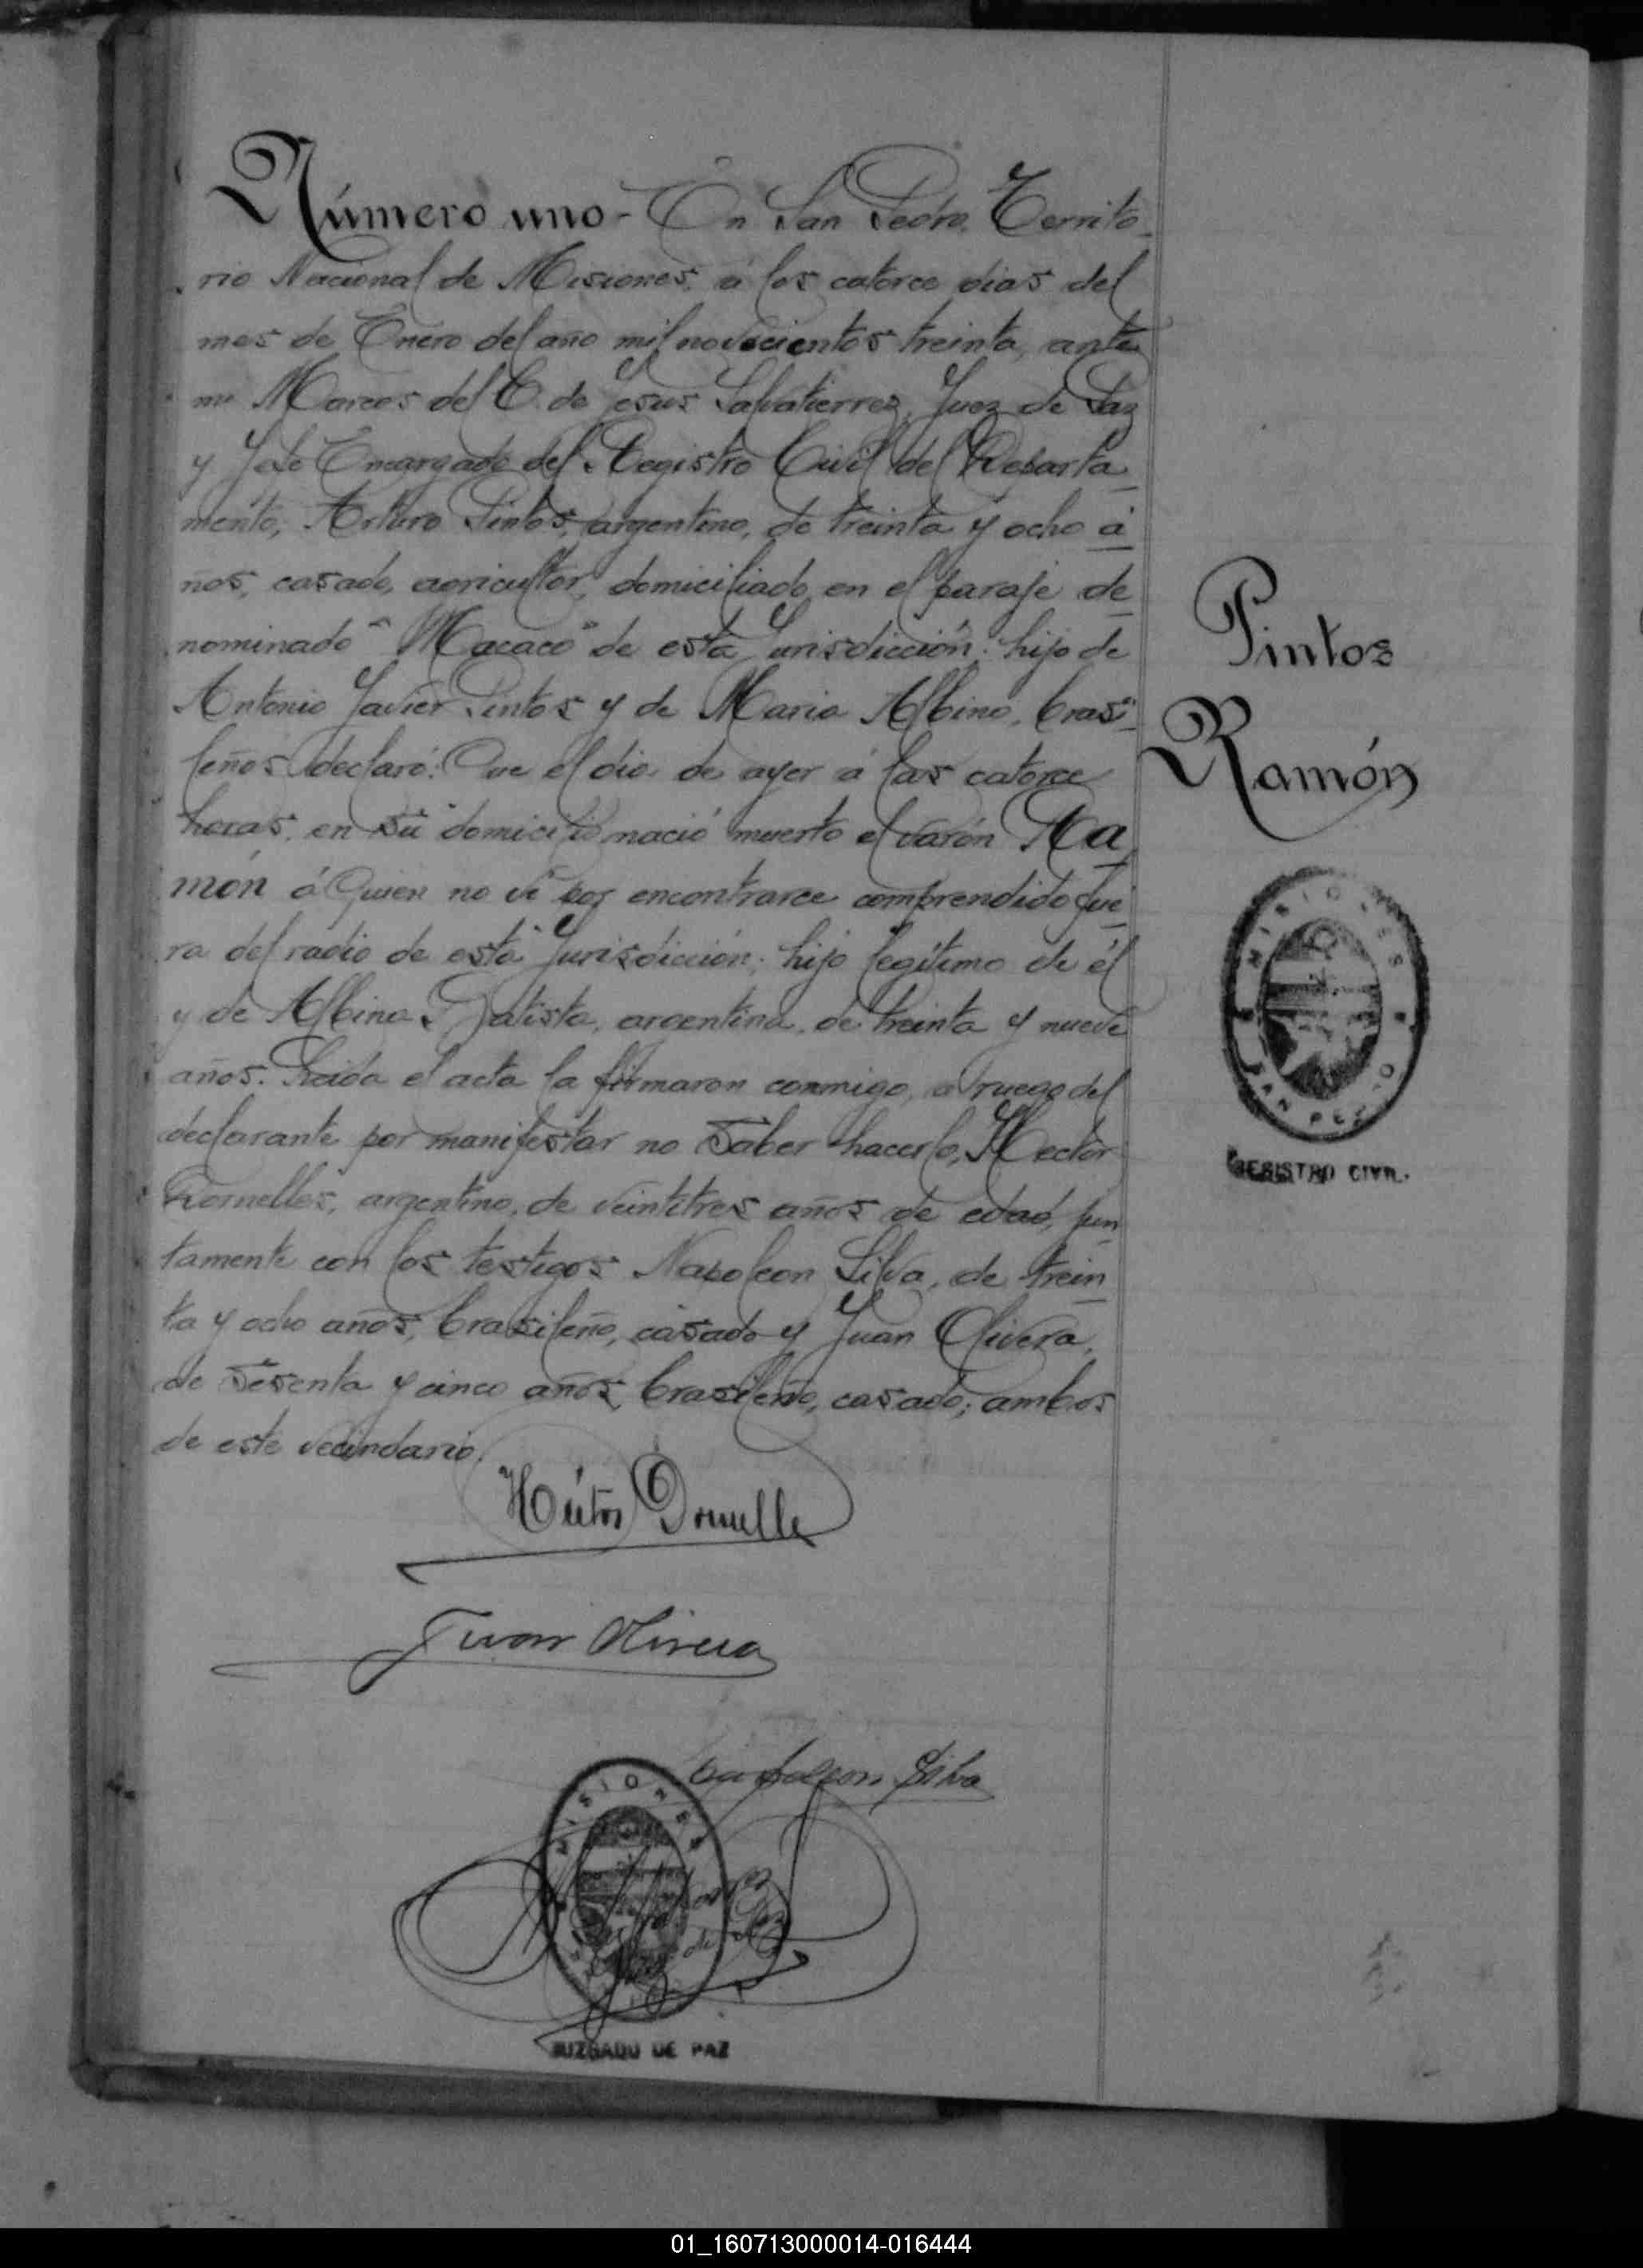 Número uno - En San Pedro, Territo-
rio Nacional de Misiones, á los catorce dias del
mes de Enero del año mil novecientos treinta, ante
mi Marcos del C. de Jesus Salvatierrez, Juez de Paz
y Jefe Encargado del Registro Civil del Departa-
mento, Arturo Pintos, argentino, de treinta y ocho a-
ños, casado, agricultor, domiciliado en el paraje de-
nominado "Macaco" de esta Jurisdicción; hijo de
Antonio Javier Pintos y de Maria Albino, brasi-
leños declaró: Que el dia de ayer á las catorce
horas, en su domicilio nació muerto el varón Ra-
món á Quien no ví por encontrarce comprendido fue-
ra del radio de esta Jurisdicción; hijo legítimo de él
y de Albina Batista, argentina, de treinta y nueve
años. Leida el acta la firmaron conmigo, a ruego del
declarante por manifestar no Saber hacerlo, Hector
Dornelles, argentino, de veintitres años de edad, jun-
tamente con los testigos Napoleon Silva, de trein-
ta y ocho años, brasileño, casado y Juan Olivera,
de Sesenta y cinco años, brasileño, casado; ambos
de este vecindario.
Pintos
Ramón
MISIONES
SAN PEDRO
REGISTRO CIVIL.
Héctor Dornelle
Juan Olivera
Napoleon Silva
MISIONES
Juez de Paz
JUZGADO DE PAZ
01_160713000014-016444